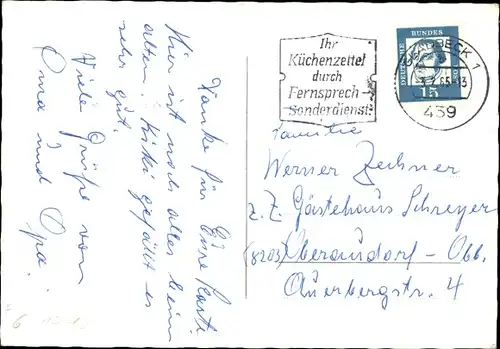 Danke für Eure Karte.
Hier ist noch alles beim
alten. Kiki gefällt es
sehr gut.
Viele Grüße von
Oma und Opa.
Ihr
Küchenzettel
durch
Fernsprech-
Sonderdienst!
DEUTSCHE BUNDESPOST
15
BECK 1
65-13
439
Familie
Werner Zechner
z. Z. Gästehaus Schreyer
(8203) Oberaudorf - Obb.
Auerbergstr. 4